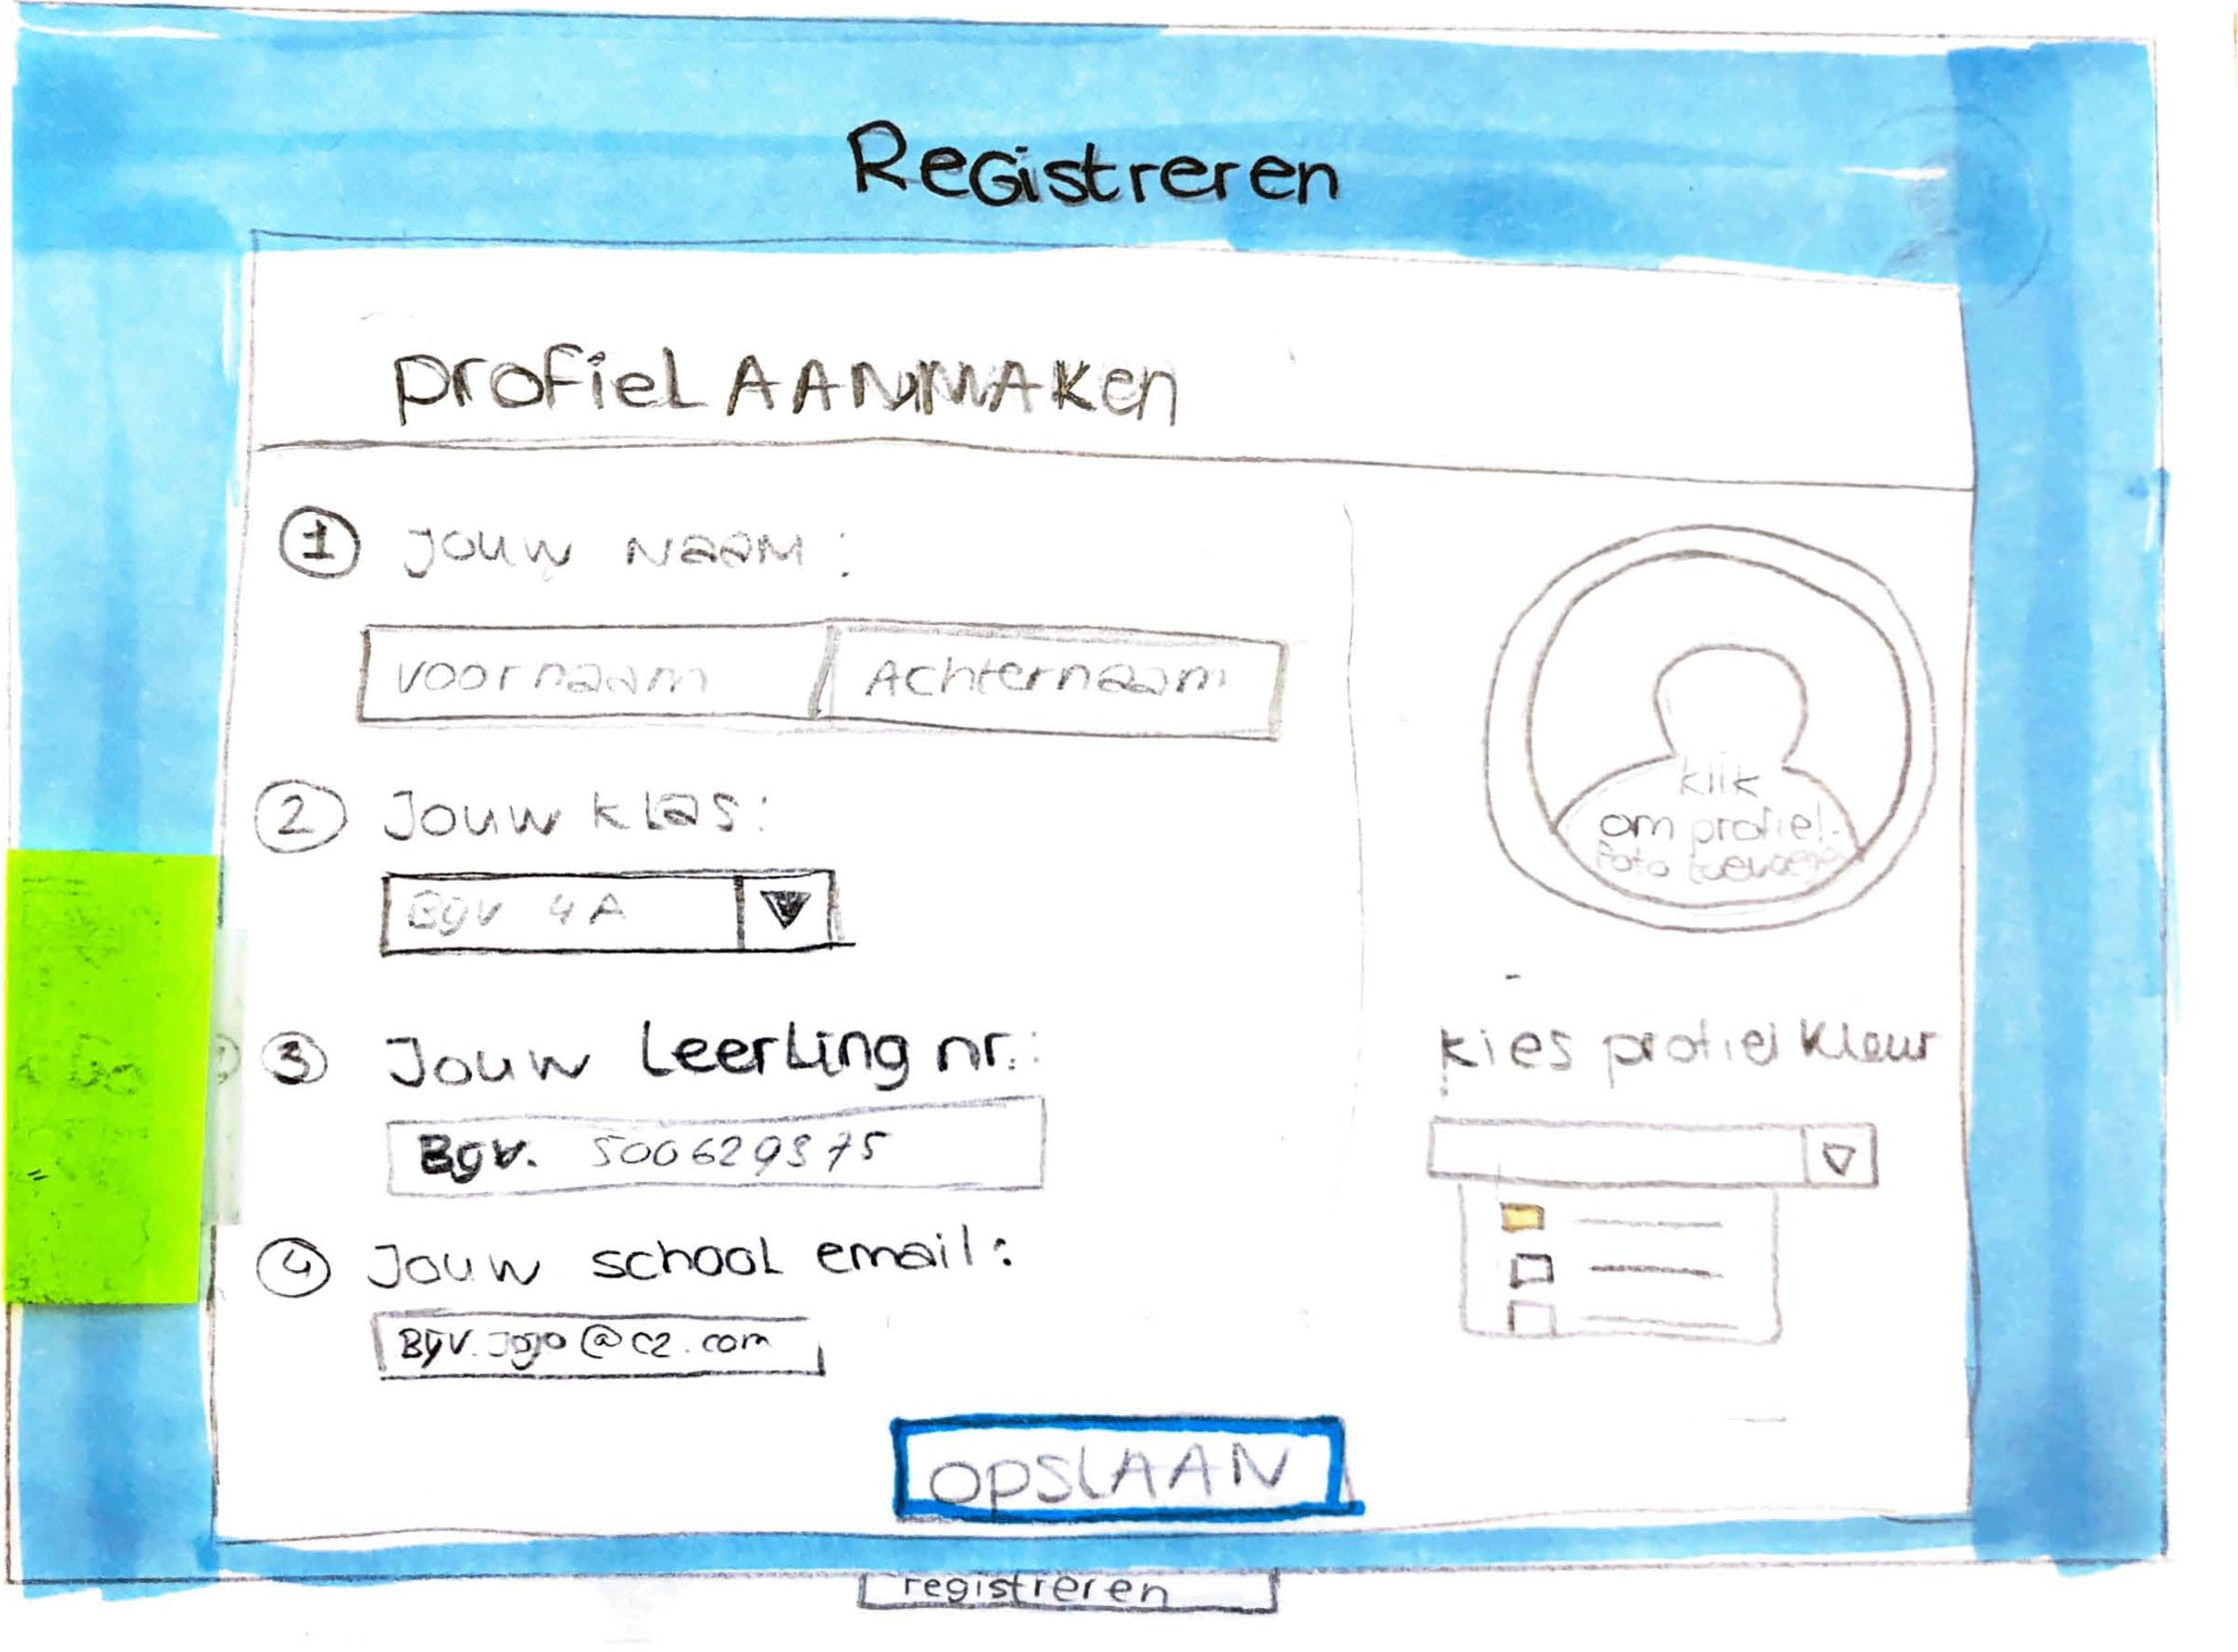 Registreren
Profiel AANMAKen
1 Jouw Naam:
Voornaam Achternaam
2 Jouw klas:
Bgv 4A
3 Jouw Leerling nr.:
Bgv. 500629375
4 Jouw school email:
Bgv. Jojo@c2.com
klik
om profiel-
foto toevoegen
kies profiel kleur
OPSLAAN
registreren